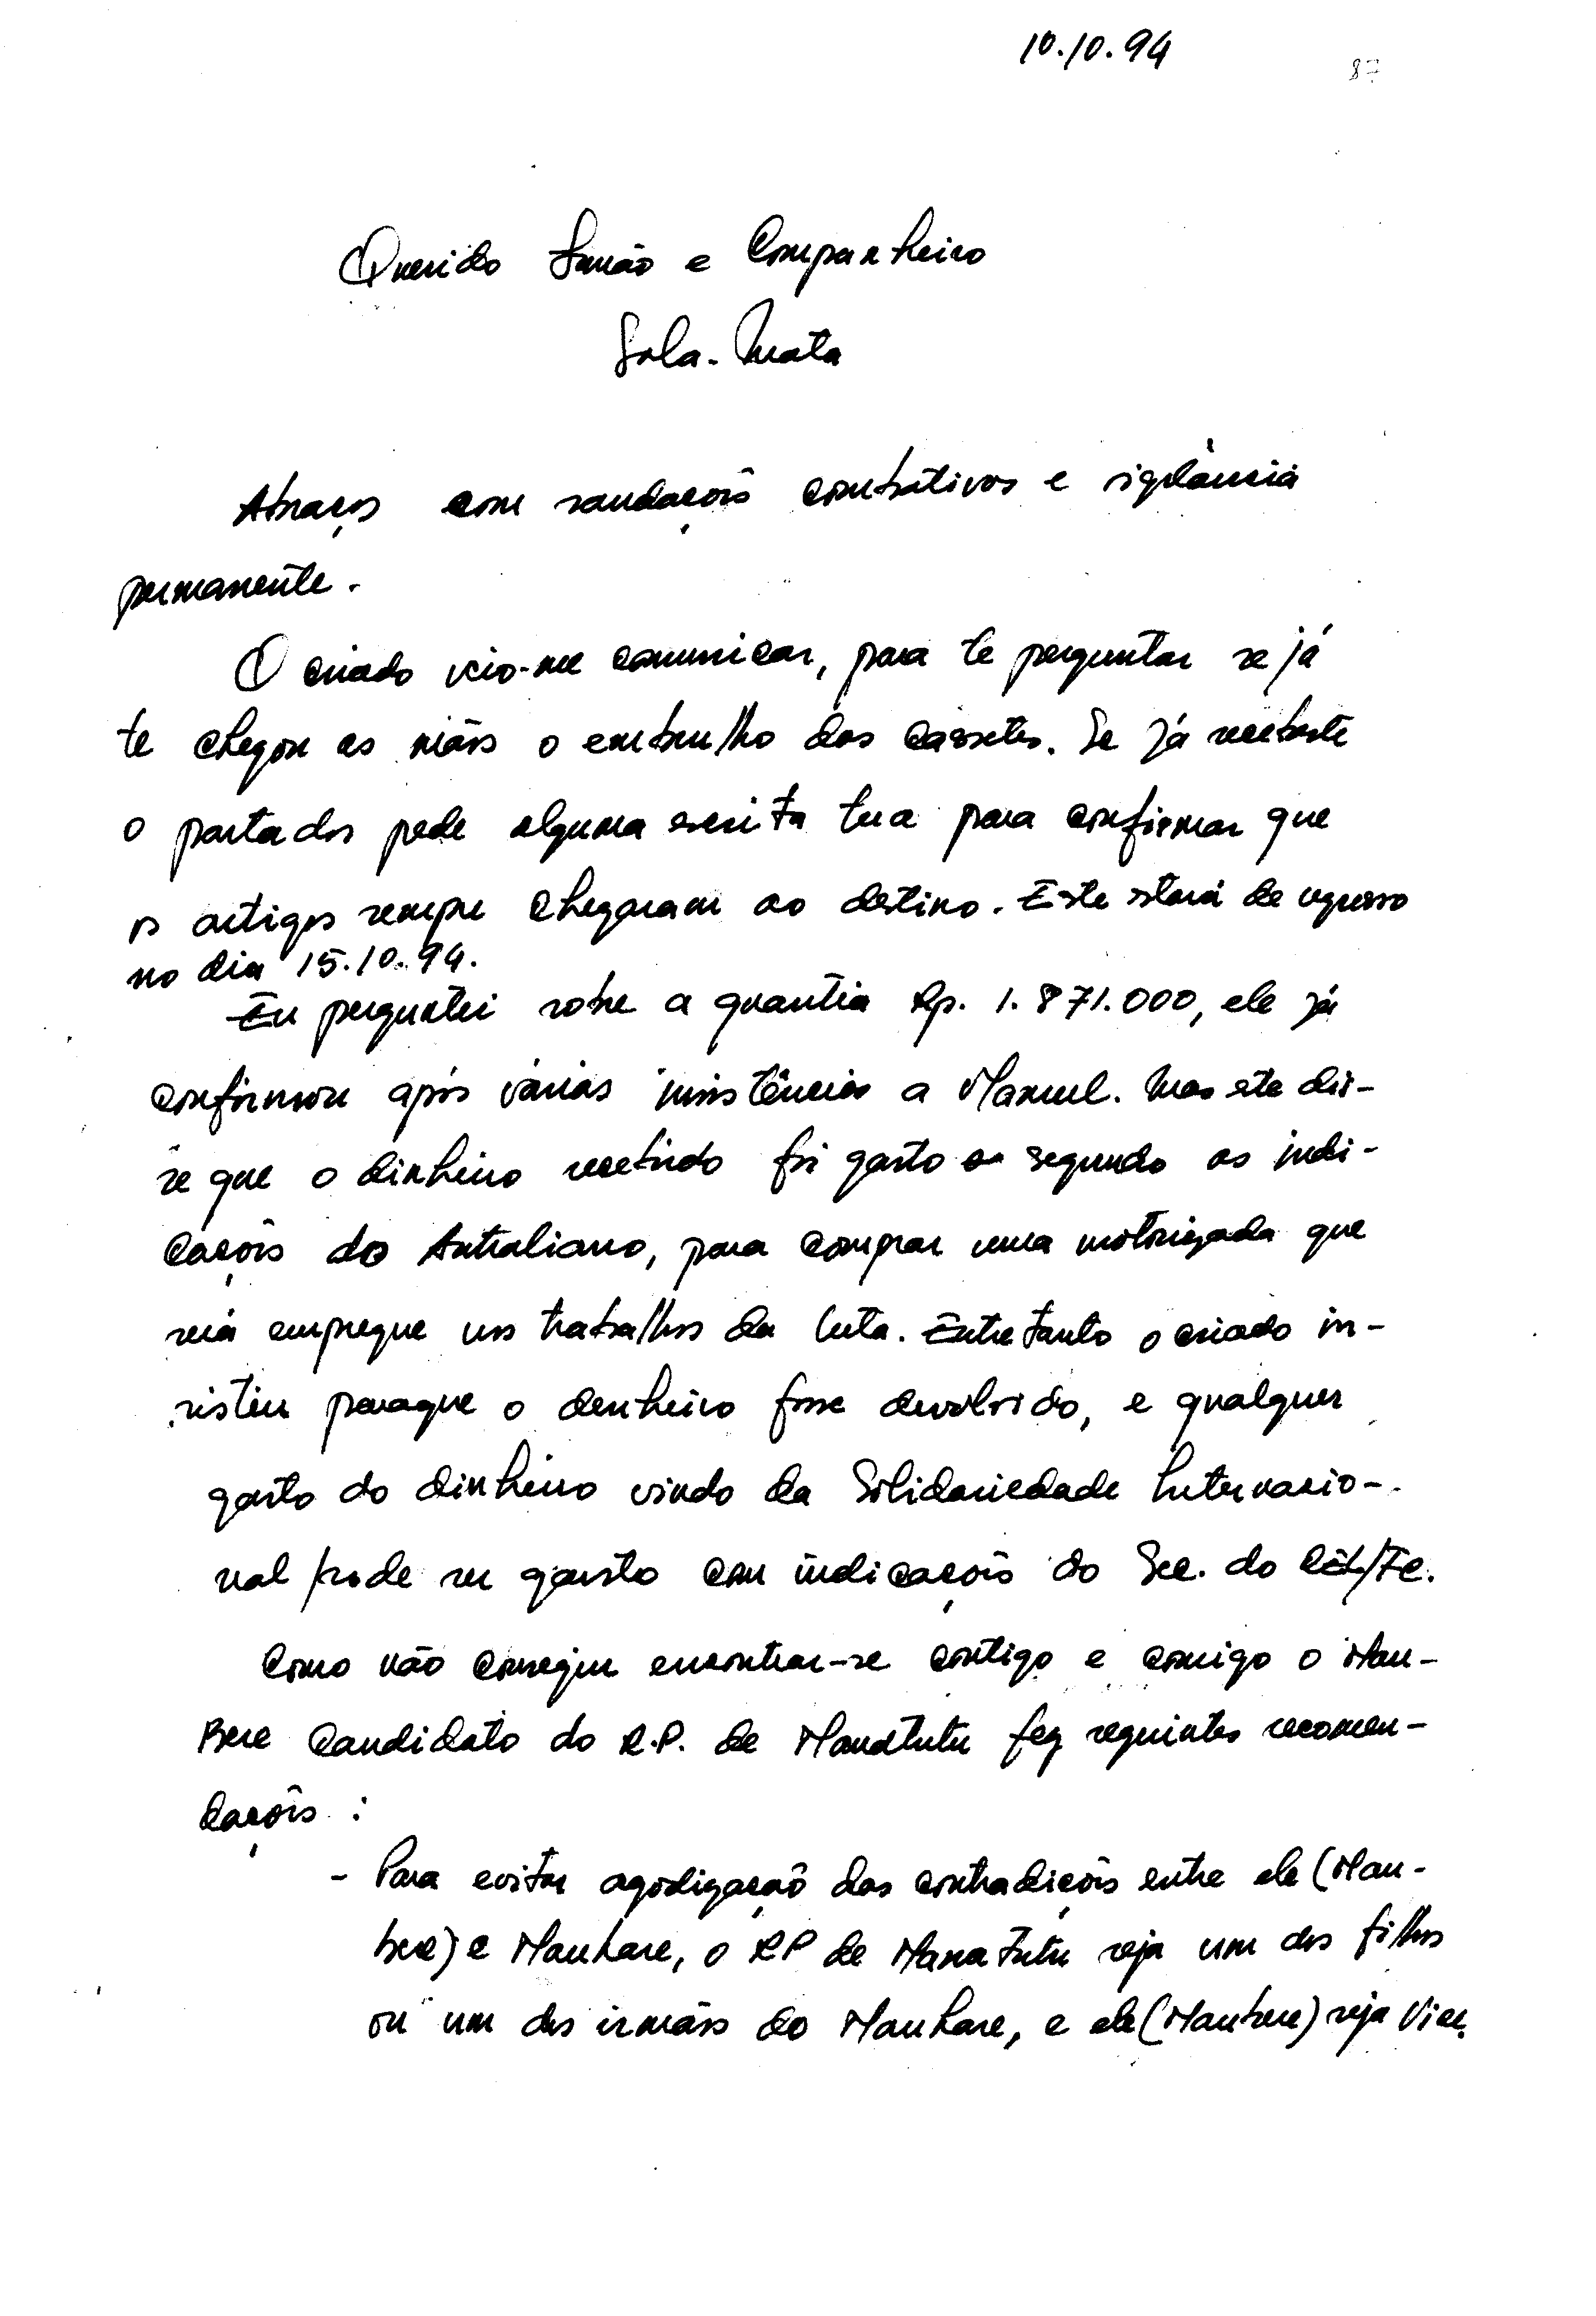 10.10.94
87
Querido Irmão e Companheiro
Sola-Mata
Abraços com saudaçoês combativos e vigilância
permanente.
O criado veio-me comunicar, para te perguntar se já
te chegou as mãos o embrulho das cassetes. Se já recebeste
o portador pede alguma escrita tua para confirmar que
os artigos sempre chegaram ao destino. Este estará de regresso
no dia 15.10.94.
Eu perguntei sobre a quantia Rp. 1.871.000, ele já
confirmou após várias insistências a Manuel. Mas este dis-
se que o dinheiro recebido foi gasto segundo as indi-
caçoês do Autraliano, para comprar uma motorizada que
será empregue nos trabalhos da luta. Entretanto o criado in-
sistiu paraque o denheiro fosse devolvido, e qualquer
gasto do dinheiro vindo da Solidariedade Internacio-
nal pode ser gasto com indicaçoês do Sec. do
Como não conseguiu encontrar-se contigo e comigo o Mau-
Bere Candidato do R.P. de Manatutu fez seguintes recomen-
daçoês :
- Para evitar agodizaçaõ das contradiçoês entre ele (Mau-
bere) e Mauhare, o RP de Manatutu seja um dos filhos
ou um dos irmãos do Mauhare, e ele (Maubere) seja Vice.